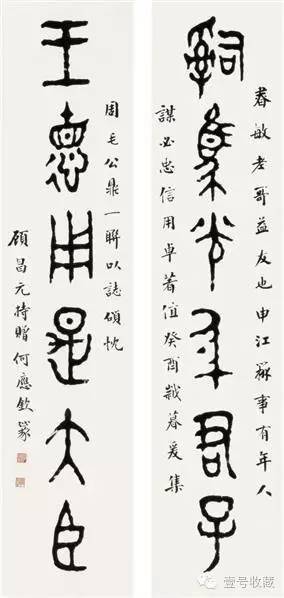 君子
春敏老哥益友也申江事有年人
謀必忠信用卓著值癸酉歲暮爰集
王悳用是大臣
周毛公鼎一聯以誌頌忱
顧昌元持贈何應欽篆
壹号收藏